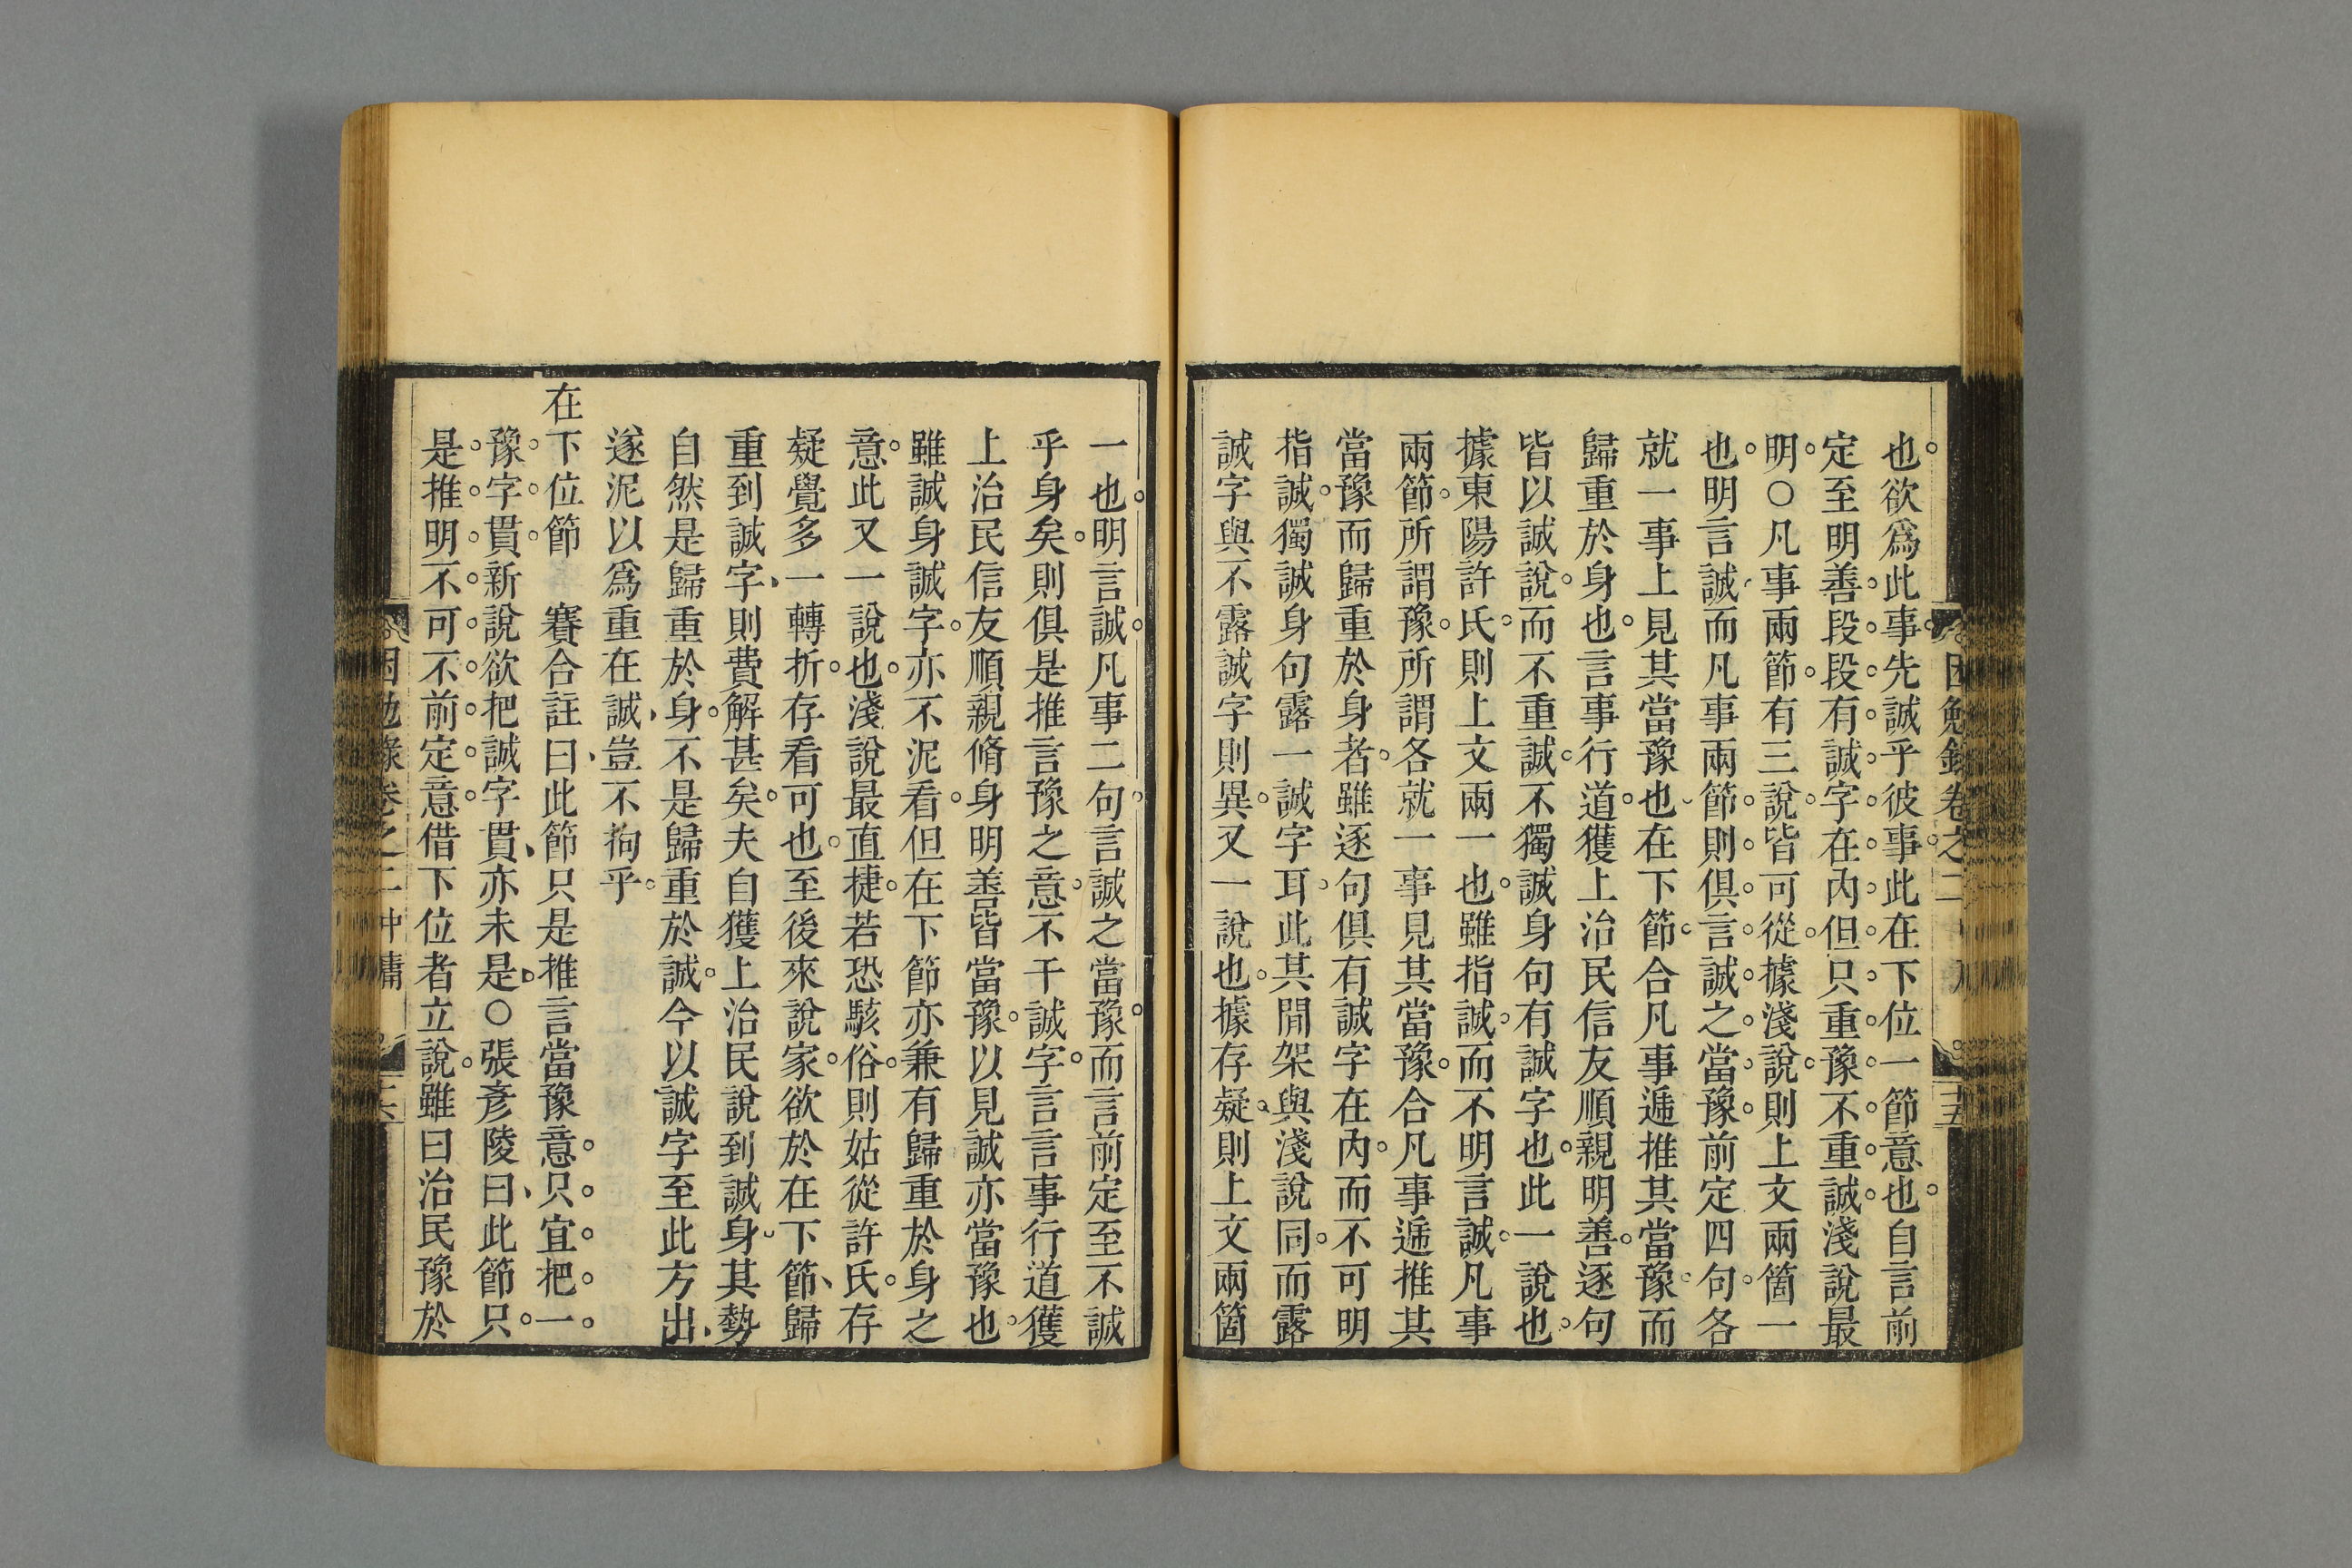 也欲爲此事先誠乎彼事此在下位一節意也自言前
定至明善段段有誠字在內但只重豫不重誠淺說最
明○凡事兩節有三說皆可從據淺說則上文兩箇一
也明言誠而凡事兩節則俱言誠之當豫前定四句各
就一事上見其當豫也在下節合凡事遞推其當豫而
歸重於身也言事行道獲上治民信友順親明善逐句
皆以誠說而不重誠不獨誠身句有誠字也此一說也
據東陽許氏則上文兩一也雖指誠而不明言誠凡事
兩節所謂豫所謂各就一事見其當豫合凡事遞推其
當豫而歸重於身者雖逐句俱有誠字在內而不可明
指誠獨誠身句露一誠字耳此其間架與淺說同而露
誠字與不露誠字則異又一說也據存疑則上文兩箇
一也明言誠凡事二句言誠之當豫而言前定至不誠
乎身矣則俱是推言豫之意不干誠字言言事行道獲
上治民信友順親脩身明善皆當豫以見誠亦當豫也
雖誠身誠字亦不泥看但在下節亦兼有歸重於身之
意此又一說也淺說最直捷若恐駭俗則姑從許氏存
疑覺多一轉折存看可也至後來說家欲於在下節歸
重到誠字則費解甚矣夫自獲上治民說到誠身其勢
自然是歸重於身不是歸重於誠今以誠字至此方出
遂泥以爲重在誠豈不拘乎
在下位節 賽合註曰此節只是推言當豫意只宜把一
豫字貫新說欲把誠字貫亦未是○張彥陵曰此節只
是推明不可不前定意借下位者立說雖曰治民豫於